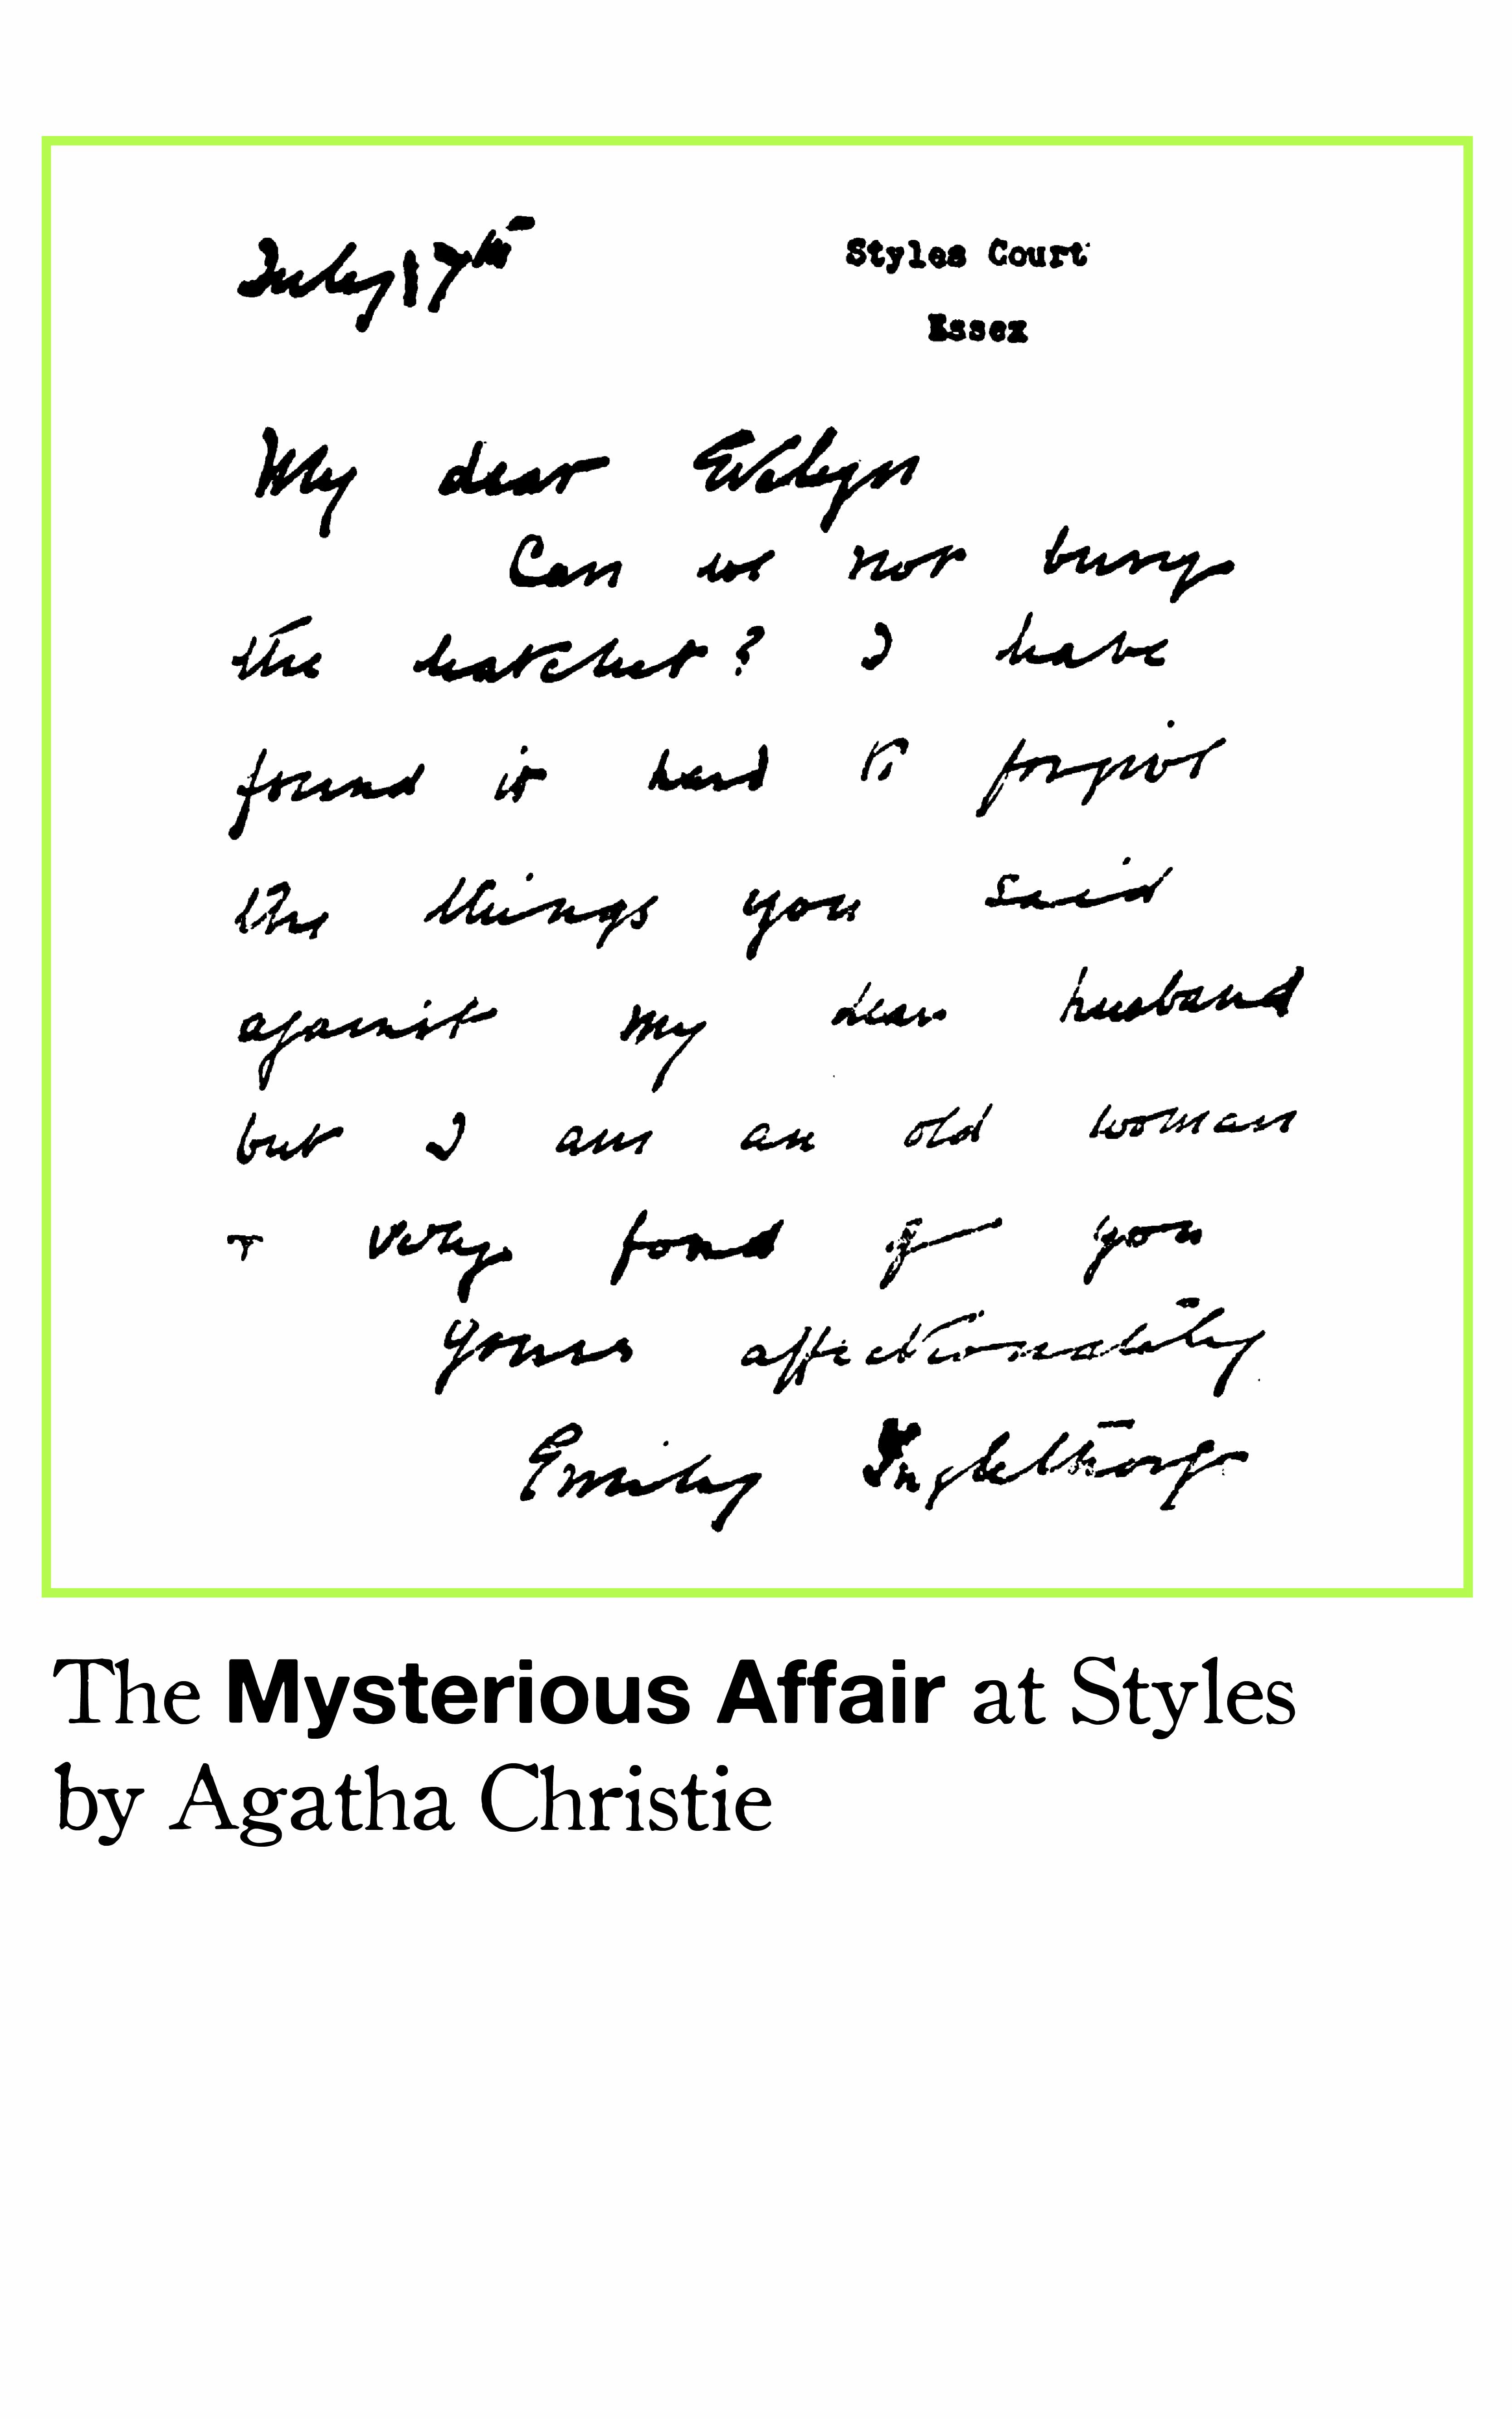 July 17th
Styles Court
Essex
My dear Evelyn
Can we not bury
the hatchet? I have
found it hard to forgive
the things you said
against my dear husband
but I am an old woman
& very fond of you
Yours affectionately
Emily Inglethorp
The Mysterious Affair at Styles
by Agatha Christie